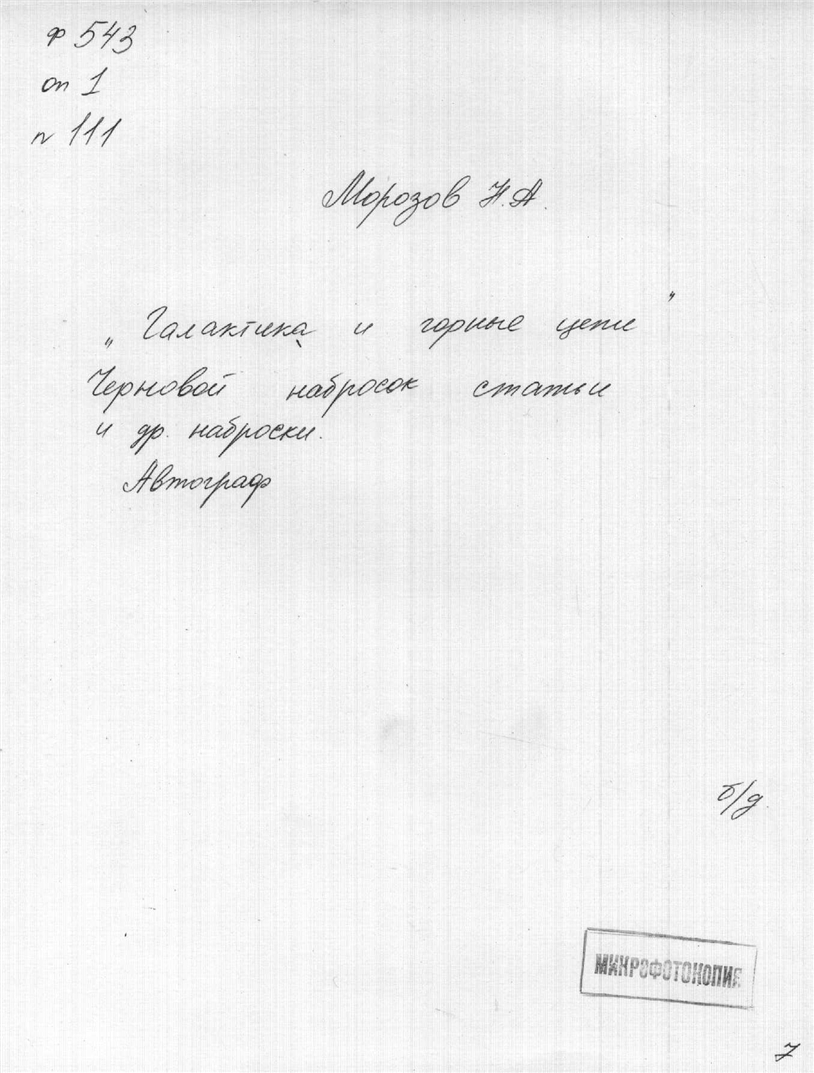 ф 543
оп 1
№ 111
Морозов Н.А.
„Галактика и горные цепи"
Черновой набросок статьи
и др. наброски.
Автограф
б/д
МИКРОФОТОКОПИЯ
7